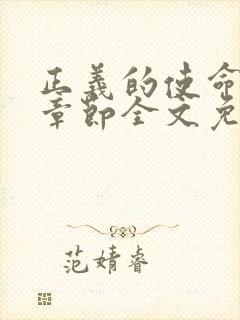 正義的使命
章節全文免
范婧睿